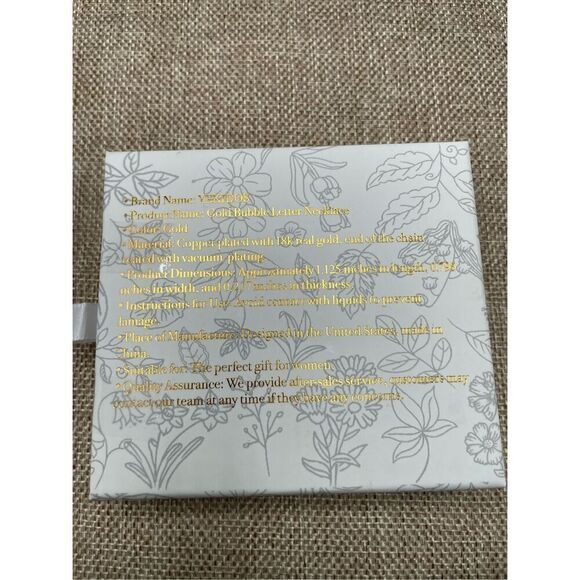 • Brand Name:
• Product Name: Gold Bubble Letter Necklace
• Color: Gold
• Material: Copper plated with 18k real gold, end of the chain
coated with vacuum plating
• Product Dimensions: Approximately 1.125 inches in length,
inches in width, and inches in thickness
• Instructions for Use: Avoid contact with liquids to prevent
damage.
• Place of Manufacture: Designed in the United States, made in
China.
• Suitable for: The perfect gift for women.
• Quality Assurance: We provide after-sales service, customers may
contact our team at any time if they have any concerns.